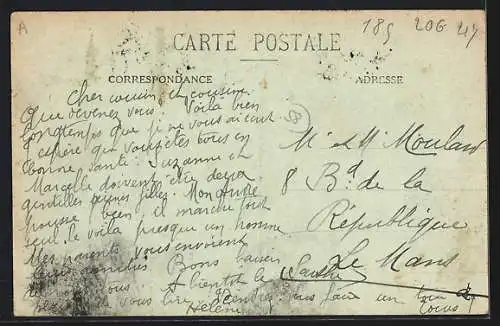 A
185 206 247
CARTE POSTALE
CORRESPONDANCE
ADRESSE
Cher cousin et cousine
Que devenez vous. Voila bien
longtemps que je ne vous ai écrit
J'espère que vous êtes tous en
bonne santé. Suzanne et
Marcelle doivent être deux
gentilles petites filles. Mon André
pousse bien, il marche tout
seul le voila presque un homme
Mes parents vous envoient
leurs amitiés. Bons baisers
vous A bientôt le
vous lire
Hélène
Mr et Me Moulard
8 Bd de la
République
Le Mans
Sarthe
un
tous